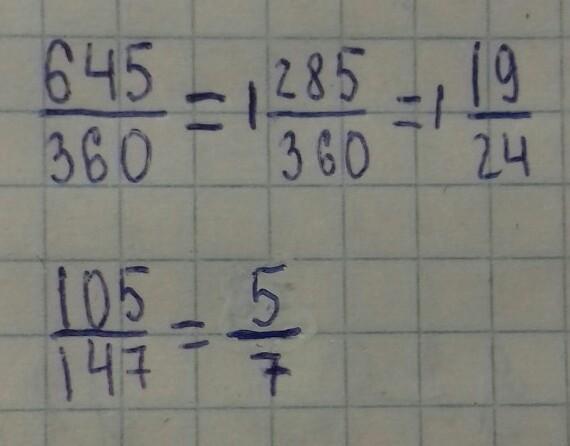 645/360 = 1 285/360 = 1 19/24
105/147 = 5/7